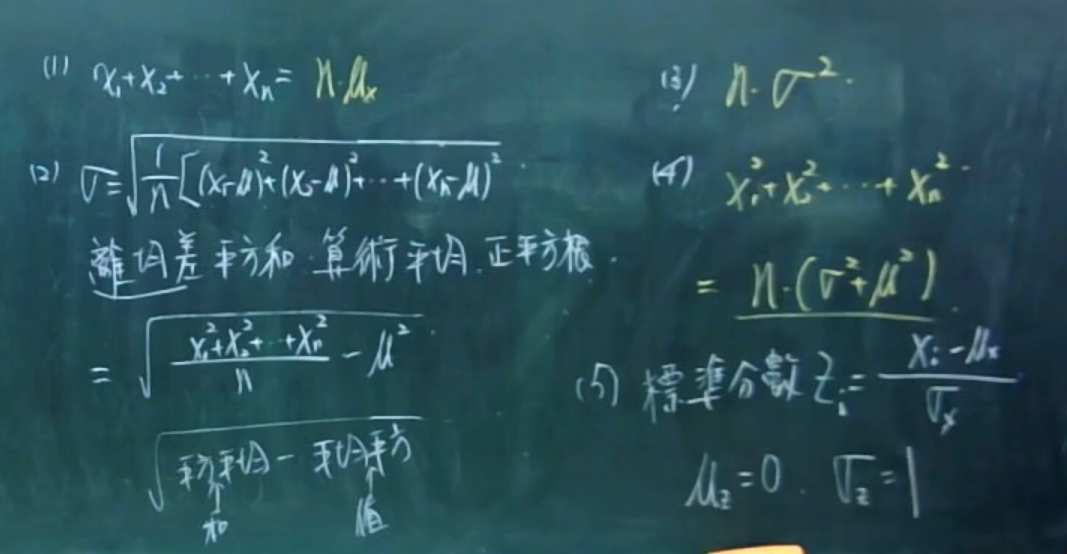 (1) x₁+x₂+…+xₙ= n·μₓ
(2) σ=√(1/n[(x₁-μ)²+(x₂-μ)²+…+(xₙ-μ)²
離均差平方和.算術平均.正平方根.
= √((x₁²+x₂²+…+xₙ²)/n - μ²)
√(平方平均-平均平方)
和 值
(3) n·σ².
(4) x₁²+x₂²+…+xₙ²
= n·(σ²+μ²)
(5) 標準分數 Zᵢ= (xᵢ-μₓ)/σₓ
μ_z=0. σ_z=1